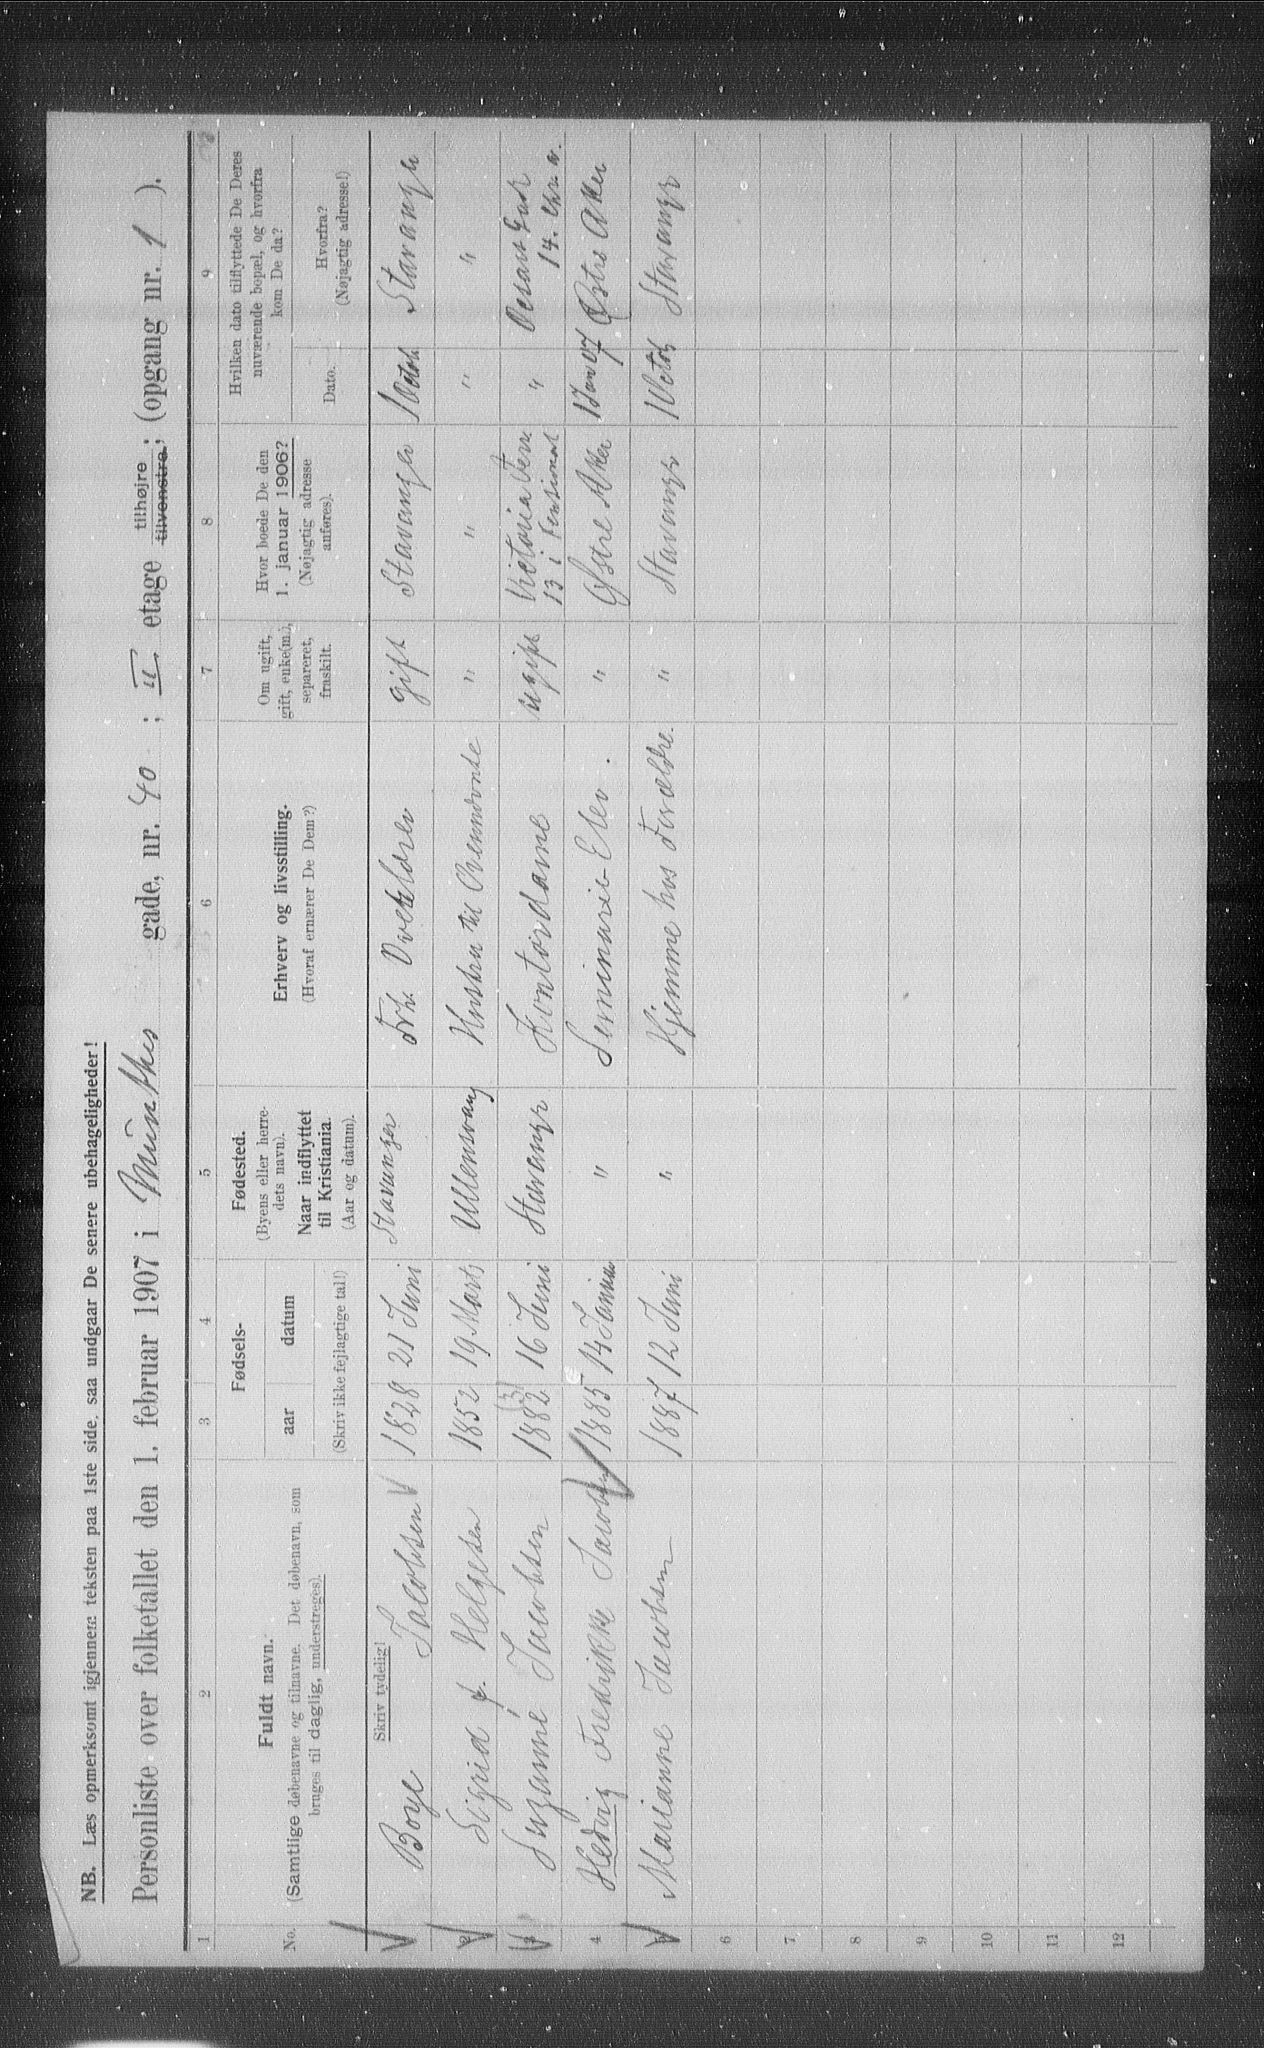 NB. Læs opmerksomt igjennem teksten paa 1ste side, saa undgaar De senere ubehageligheder!
Personliste over folketallet den 1. februar 1907 i Munthes gade, nr. 40 ; II. etage tilhøjre tilvenstre; (opgang nr. 1 ).
1 2 3 4 5 6 7 8 9
No.
Fuldt navn.
(Samtlige døbenavne og tilnavne. Det døbenavn, som
bruges til daglig, understreges).
Fødsels-
aar datum
(Skriv ikke fejlagtige tal!)
Fødested.
(Byens eller herre-
dets navn).
Naar indflyttet
til Kristiania.
(Aar og datum).
Erhverv og livsstilling.
(Hvoraf ernærer De Dem?)
Om ugift,
gift, enke(m.),
separeret,
fraskilt.
Hvor boede De den
1. januar 1906?
(Nøjagtig adresse
anføres).
Hvilken dato tilflyttede De Deres
nuværende bopæl, og hvorfra
kom De da?
Dato.
Hvorfra?
(Nøjagtig adresse!)
Skriv tydelig!
Boye Jacobsen 1828 21 Juni Stavanger Fhv. gift Stavanger 1 Octob Stavanger
2 Sigrid f. Helgesen 1852 19 Marts Ullensvang Hustru til Ovennævnte " " " "
Suzanne Jacobsen 1882 16 Juni Stavanger Kontordame ugift Victoria Terr. 13 i Pensionat " 14. Chr. a.
4 Hedvig Fredrikke Jacobsen 1885 14 Januar " Seminarie-Elev. " Østre Aker 1 Jan 07 Østre Aker
Marianne Jacobsen 1887 12 Juni " Hjemme hos Forældre. " Stavanger 1 Octob Stavanger
6
7
8
9
10
11
12